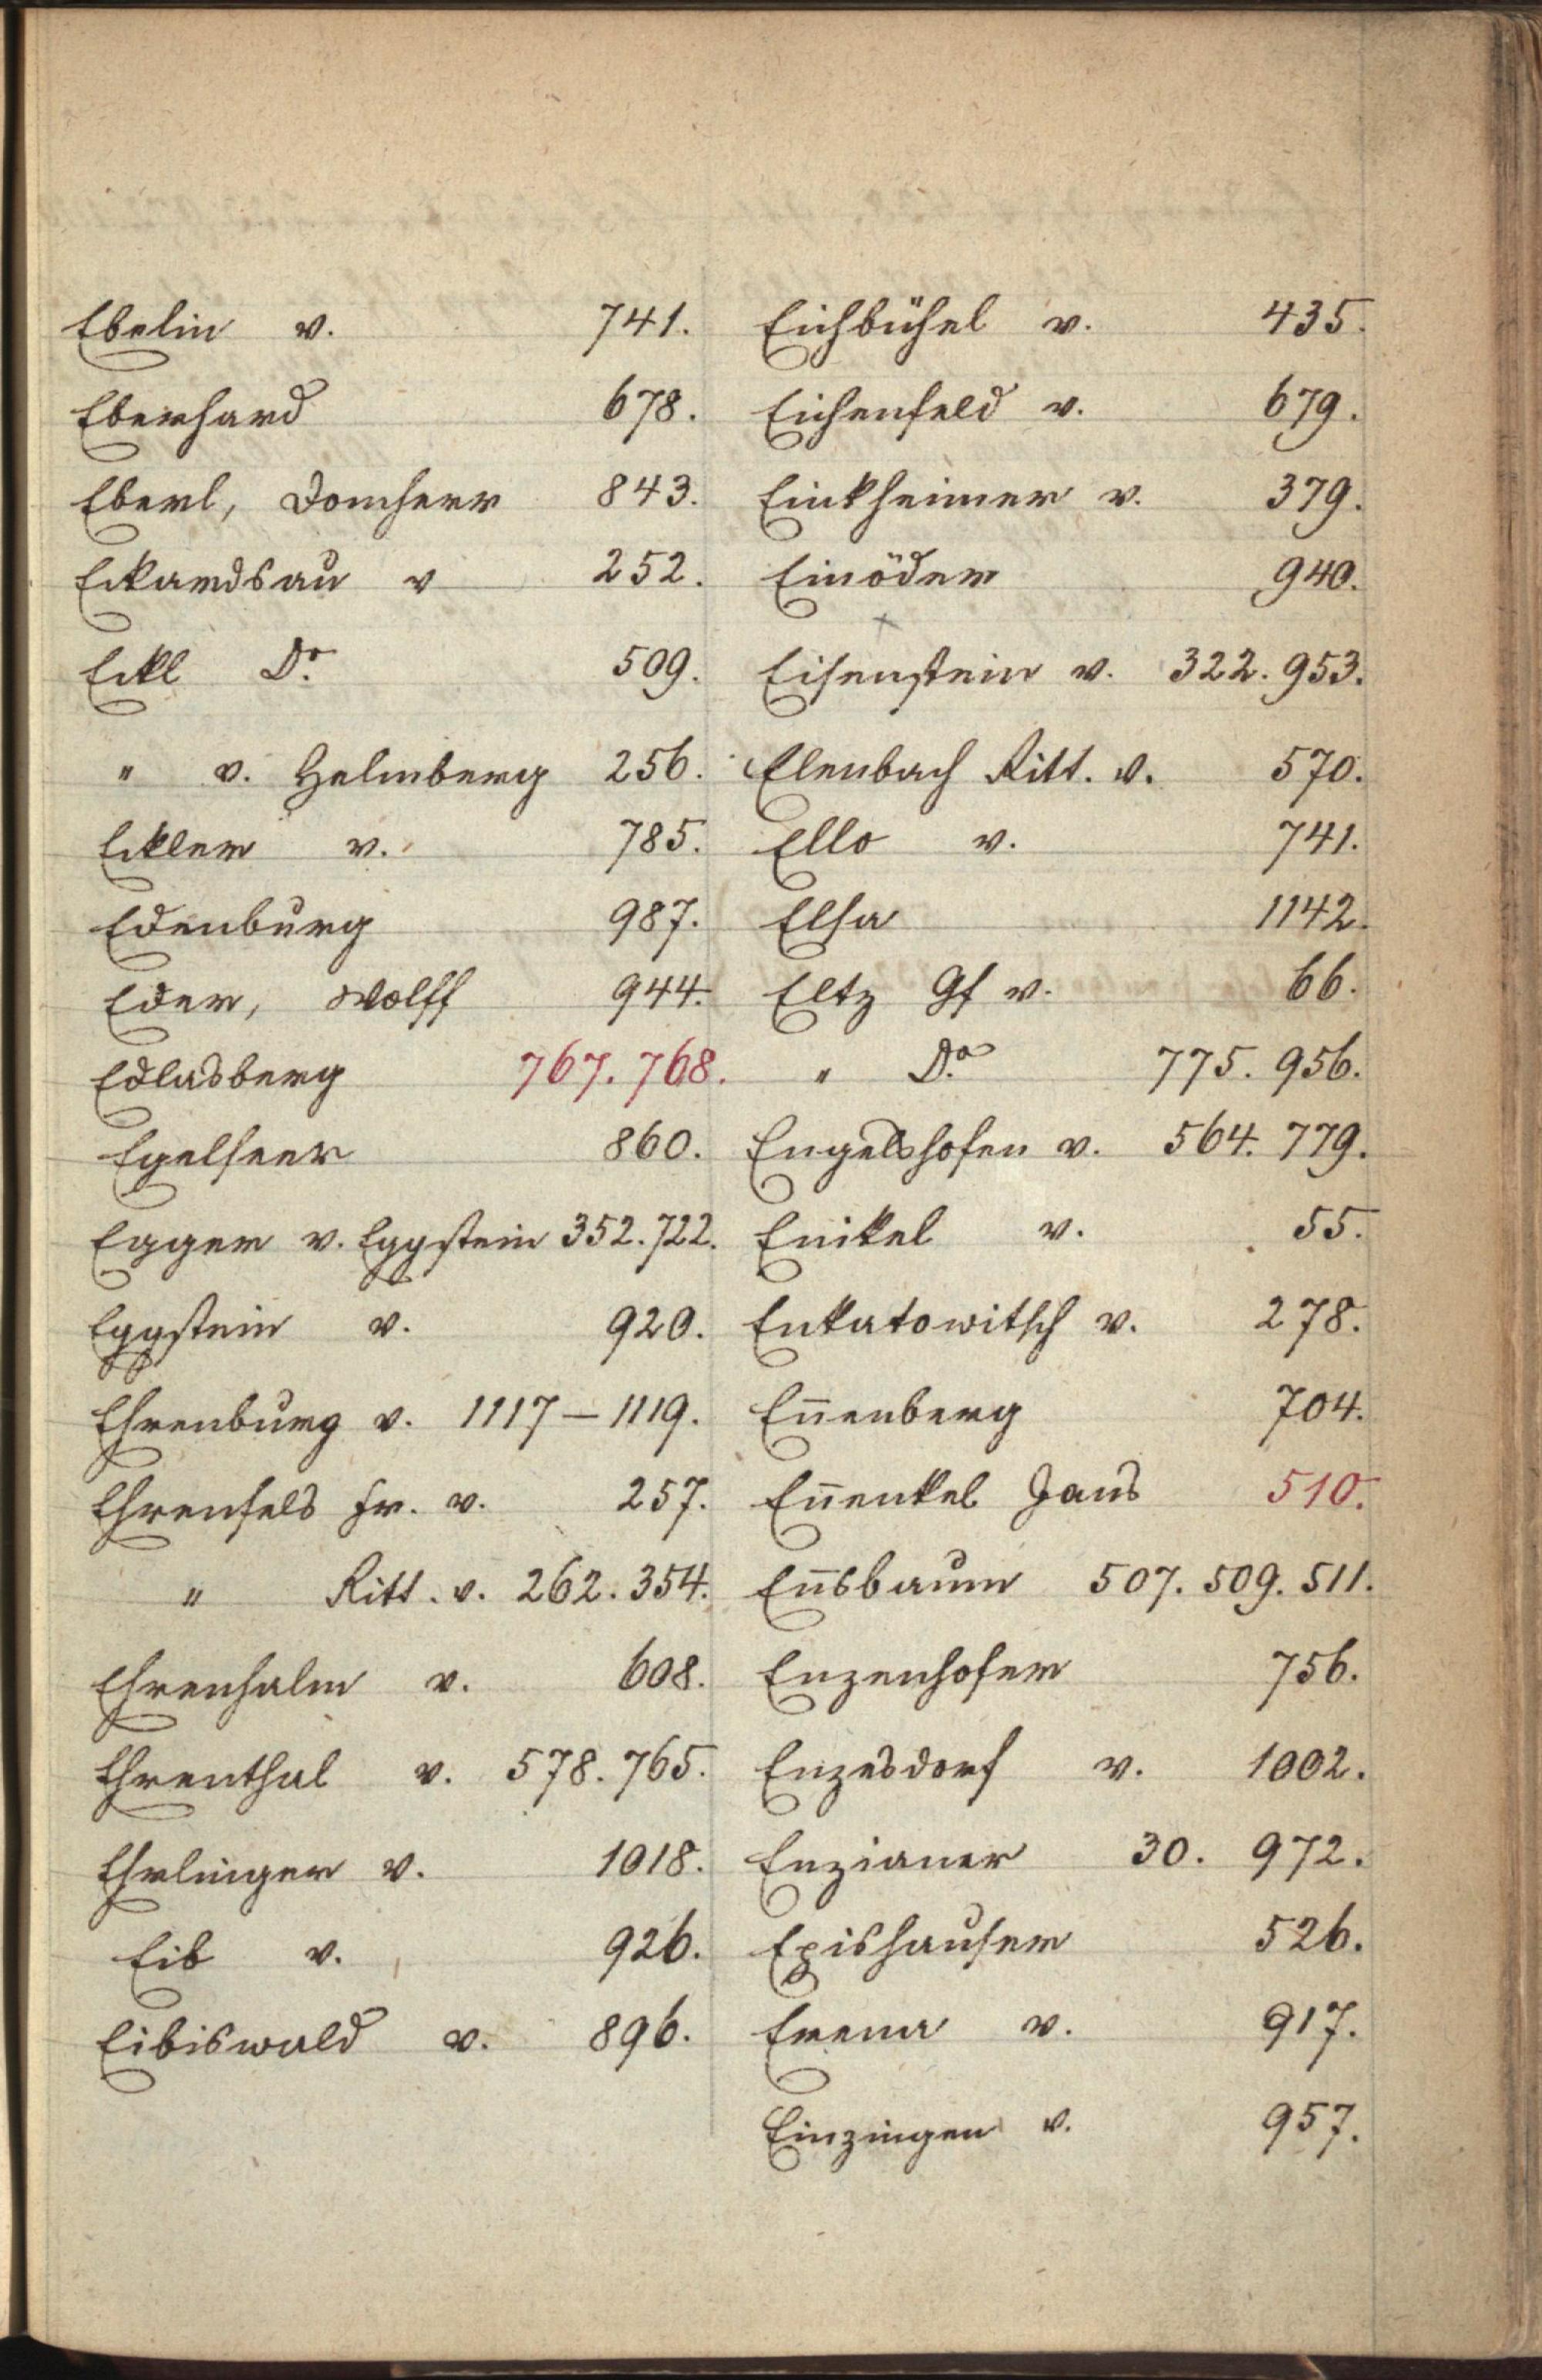 Ebelin v. 741.
Eberhard 678.
Eberl, Domherr 843.
Eckardsau v 252.
Eckl Dr. 509.
" v. Helmberg 256.
Eckler v. 785.
Edenburg 987.
Eder, Wolff 944.
Edlasberg 767. 768.
Egelseer 860.
Egger v. Eggstein 352. 722.
Eggstein v. 920.
Ehrenburg v. 1117 – 1119.
Ehrenfels Fr. v. 257.
" Ritt. v. 262. 354.
Ehrenhalm v. 608.
Ehrenthal v. 578. 765.
Ehrlinger v. 1018.
Eib v. 926.
Eibiswald v. 896.
Eichbühel v. 435.
Eichenfeld v. 679.
Einkheimer v. 379.
Einöder 940.
Eisenstein v. 322. 953.
Elenbach Ritt. v. 570.
Ello v. 741.
Elsa 1142.
Eltz Gf v. 66.
" Do. 775. 956.
Engelshofen v. 564. 779.
Enikel v. 55.
Enkatowitsch v. 278.
En̄enberg 704.
En̄enkel Jans 510.
En̄sbaum 507. 509. 511.
Enzenhofer 756.
Enzesdorf v. 1002.
Enzianer 30. 972.
Epishauser 526.
v. 917.
Einzingen v. 957.